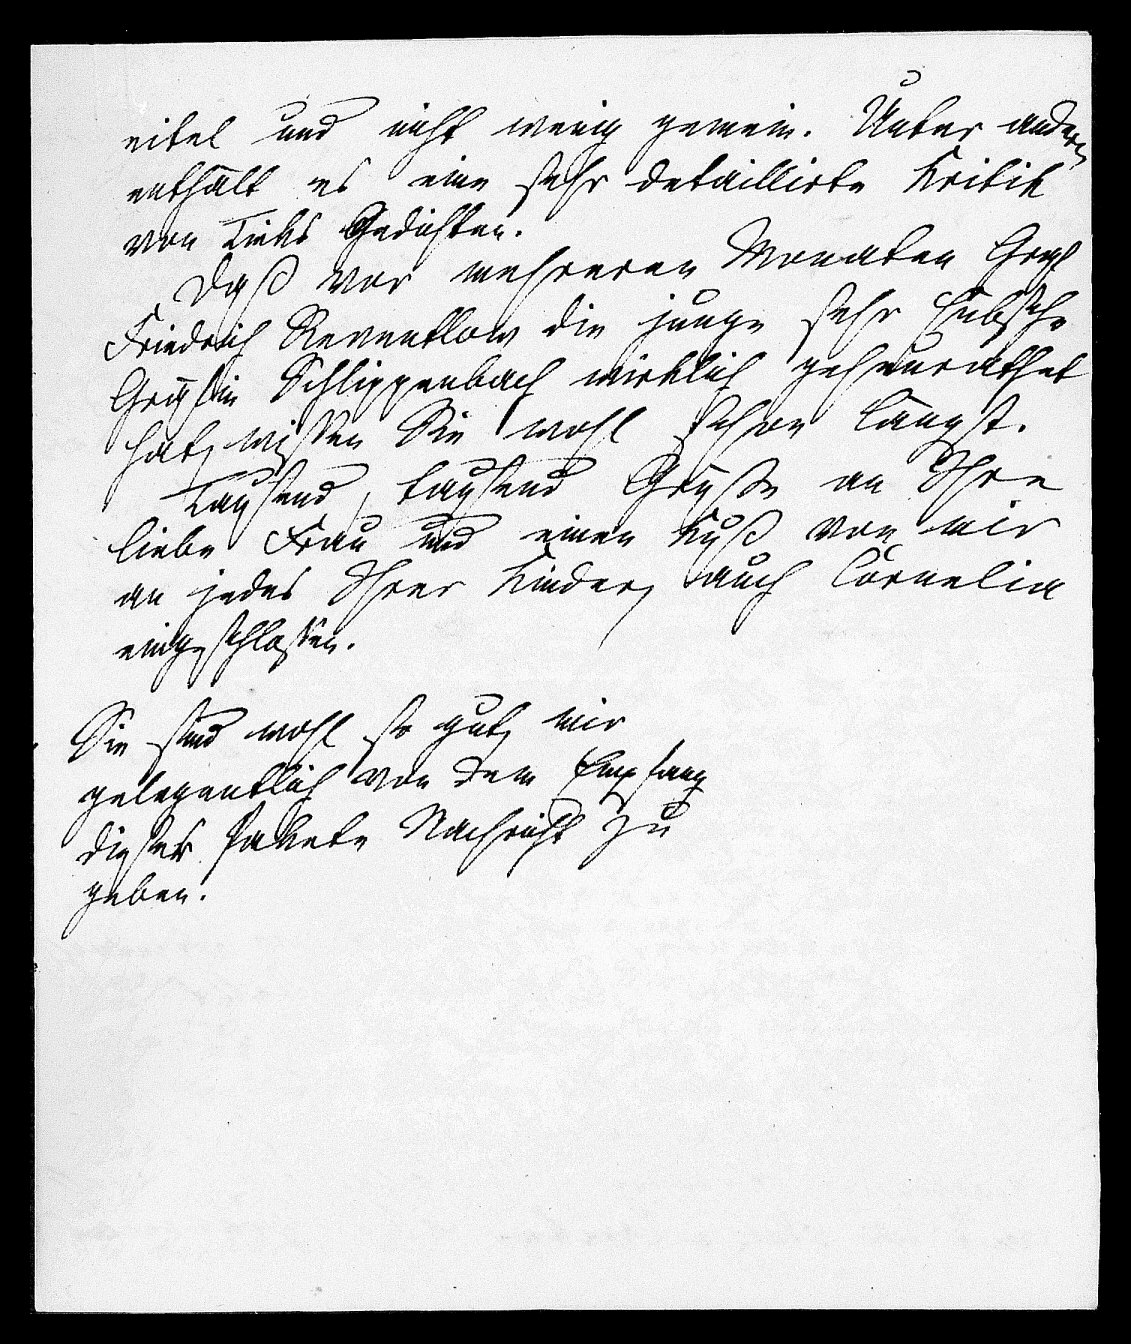 eitel und nicht wenig gemein. Unter andern
enthält es eine sehr detaillirte Kritik
von Tieks Gedichten.
Daß vor mehreren Monaten Graf
Friedrich Reventlow die junge sehr hübsche
Gräfin Schlippenbach wirklich geheurathet
hat, wissen Sie wohl schon längst.
Tausend, tausend Grüße an Ihre
liebe Frau und einen Kuß von mir
an jedes Ihrer Kinder, auch Cornelia
eingeschlossen.
Sie sind wohl so gut, mir
gelegentlich von dem Empfang
dieser Pakete Nachricht zu
geben.